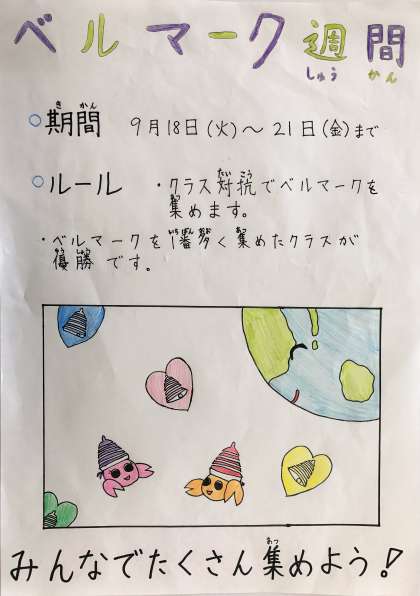 ベルマーク週間
しゅうかん
きかん
○期間 9月18日(火)～21日(金)まで
たいこう
○ルール ・クラス対抗でベルマークを
あつ
集めます。
いちばんおお あつ
・ベルマークを1番多く集めたクラスが
ゆうしょう
優勝です。
あつ
みんなでたくさん集めよう!